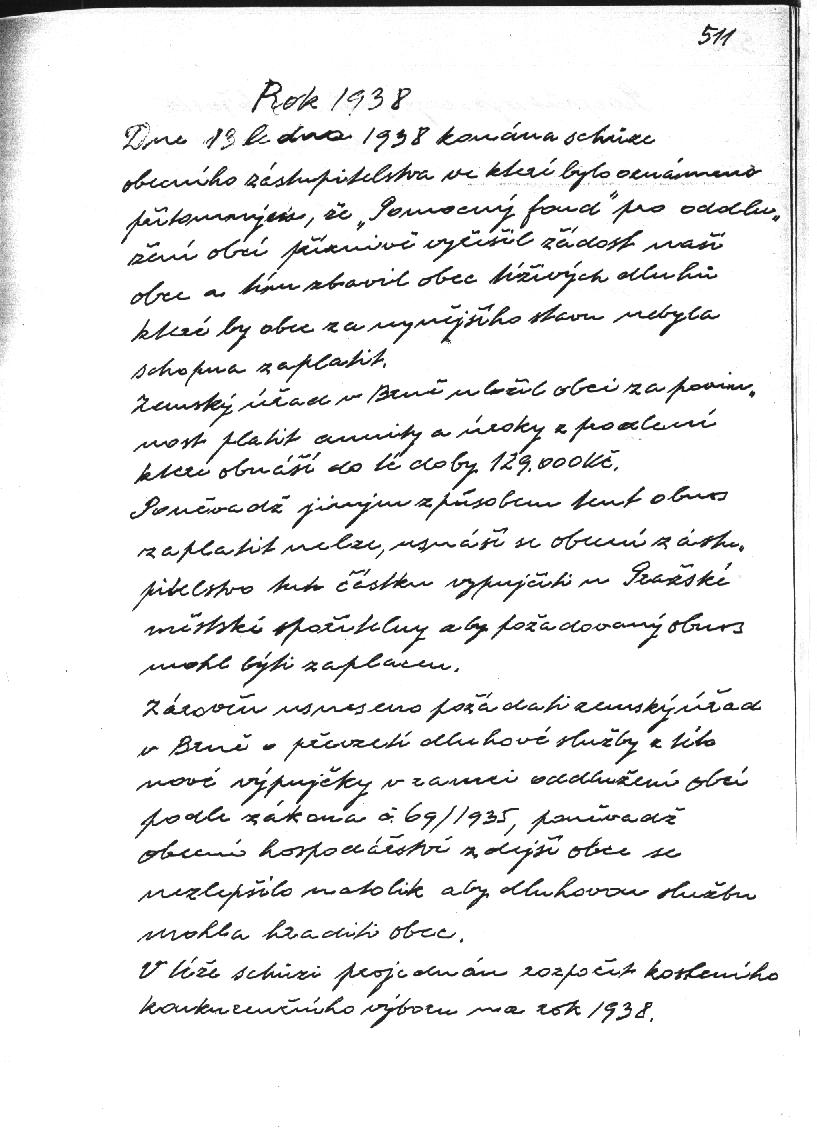 511
Rok 1938
Dne 13 ledna 1938 konána schůze
obecního zástupitelstva ve které bylo oznámeno
přítomným, že „Pomocný fond" pro oddlu„
žení obcí příznivě vyřížil žádost naší
obce a tím zbavil obec tíživých dluhů
které by obec za nynějšího stavu nebyla
schopna zaplatit.
Zemský úřad v Brně uložil obci za povin„
nost platit anuity a úroky z prodlení
které obnáší do té doby 129.000Kč.
Poněvadž jiným způsobem tent obnos
zaplatit nelze, usnáší se obecní zástu„
pitelstvo tuto částku vypujčiti u Pražské
městské spořitelny aby požadovaný obnos
mohl býti zaplacen.
Zároveň usneseno požádati zemský úřad
v Brně o převzetí dluhové služby z této
nové výpujčky v rámci oddlužení obcí
podle zákona č 69/1935, poněvadž
obecní hospodářství zdejší obce se
nezlepšilo natolik aby dluhovou službu
mohla hraditi obec.
V téže schůzi projednán rozpočet kostelního
konkurenčního výboru na rok 1938.